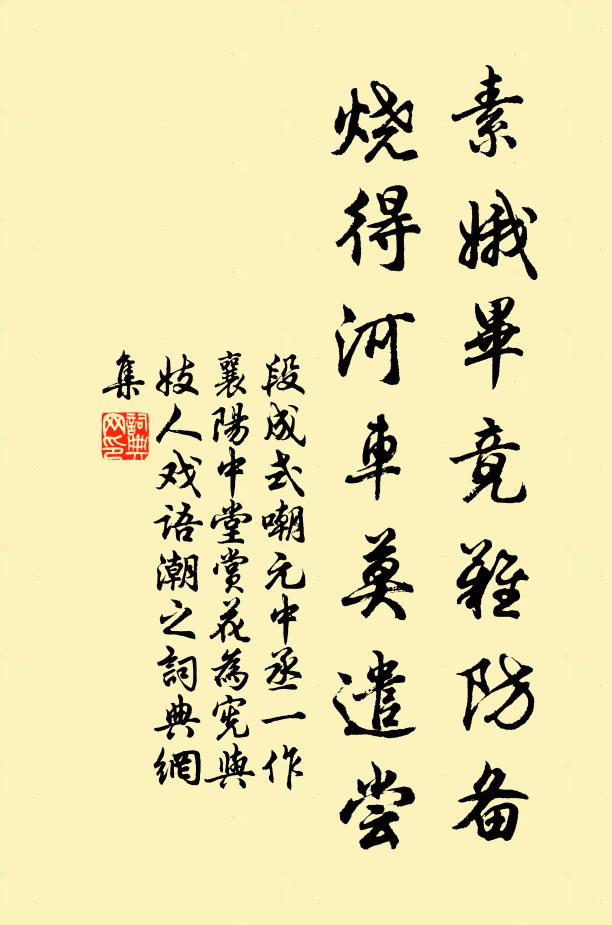 素娥畢竟難防备
烧得河車莫遣尝
段成式嘲元中丞一作
襄陽中堂赏花為宪與
妓人戏语潮之詞典網
集
詞典網印